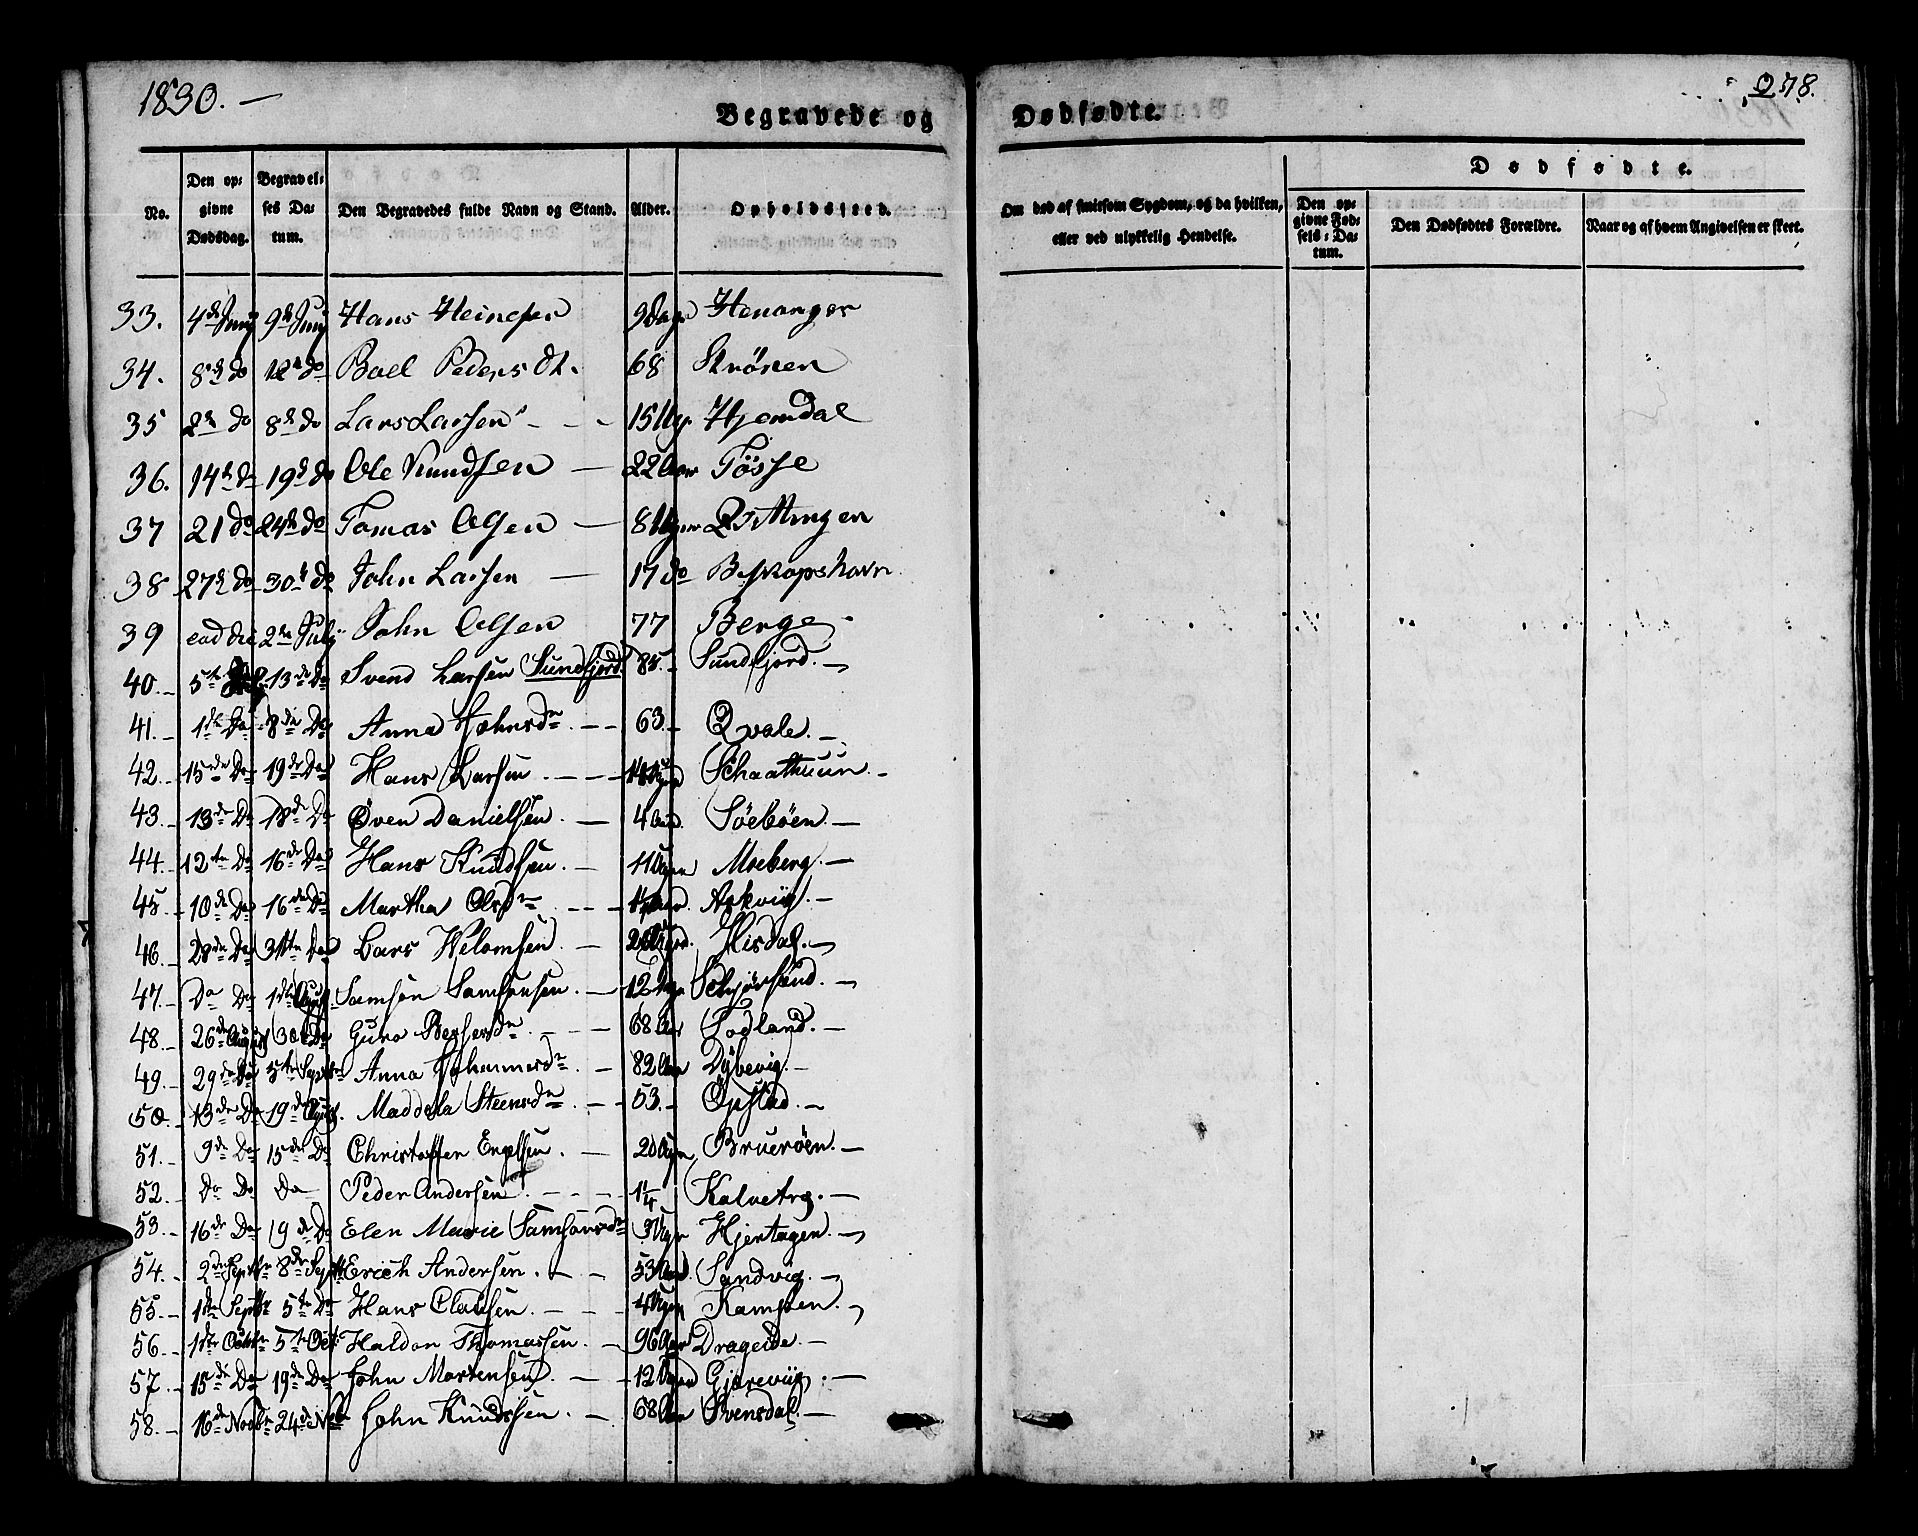 1830. —
278.
Begravede og Dødfødte.
No. Den opgivne Dødsdag. Begravelses Datum. Den Begravedes fulde Navn og Stand. Alder. Opholdssted. Om død af smitsom Sygdom, og da hvilken, eller ved ulykkelig Hendelse. Dødfødte. Den opgivne Fødsels-Datum. Den Dødfødtes Forældre. Naar og af hvem Angivelsen er skeet.
33. 4de Juny 9de Juny Hans Heinesen 9 Dage Henanger
34. 8de do 12te do Boel Peders dt. 68 Strönen
35 2de do 8de do Lars Larsen - - - 15 Uger Hjemdal
36. 14de do 19de do Ole Knudsen — 22 Aar Tösse
37 21 do 24de do Tomas Olsen — 8 Uger Qvittingen
38 27de do 30te do John Larsen — 17 do Biskopshavn
39 ead die 2den July John Olsen 77 Berge
40. 5te 13de Do Svend Larsen Sundfjord. 85. Sundfjord. —
41. 1ste Do 8de Do Anna Johnsdn. — — 63. Qvale. —
42. 15de Do 19de Do Hans Larsen. — — Schaathuun. -
43. 13de Do 18de Do Sven Danielsen. — 4 Aar. Söeböen. —
44. 12te Do 16de Do Hans Knudsen. — 11 Uger Moeberg. —
45. 10de Do 16de Do Martha Olsdn — — Askviig. —
46. 28de Do 31te Do Lars Welomsen. — Hisdal. —
47. Do Do 1ste August. Samson Samsonsen. — 12 Uger Schjörsund. —
48. 26de August 30te Do Guro Bessesdn. — 68 Aar Sodland. —
49. 29de Do 5te Septbr Anna Johannesdn. — 82 Aar Dybevig. —
50. 13de Do 19de August. Maddela Steensdn. — 53. Opstad. —
51. 9de Do 15de Do Christoffer Engelsen. — 20 Uger Brueröen. —
52. Do Do Do Peder Andersen. - - - 1 1/4 Kalvetrg. —
53. 16de Do 19de Do Elen Marie Samsonsdn Uger Hjertagen. —
54. 2den Septbr 8de Septbr Erich Andersen. — - 53 Aar. Sandvig. —
55. 1ste Septbr 5te Do Hans Clausen. — - 4 Uger Kampen. —
56. 1ste Octbr 5te Oct. Haldon Thomassen. — 96 Aar Drageide. —
57. 15de Do 19de Do John Mortensen. — 12 Uger Gjereviig. —
58. 16de Novbr 24de Nov John Knudssen. — 68 Aar Svensdal. —